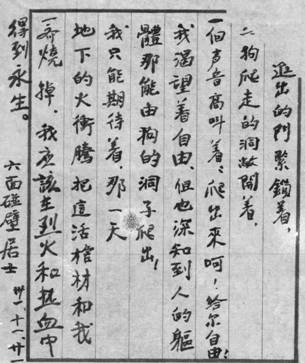 進出的門緊鎖着,
狗爬走的洞敞開着,
一個声音高叫着:爬出來呵!給尔自由!
我渴望着自由,但也深知到人的軀
體那能由狗的洞子爬出!
我只能期待着,那一天
地下的火衝騰把這活棺材和我
一齊燒掉,我應該在烈火和热血中
得到永生。
六面碰壁居士
卅一·十一·廿一